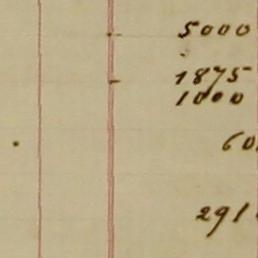 5000
1875
1000
60
291